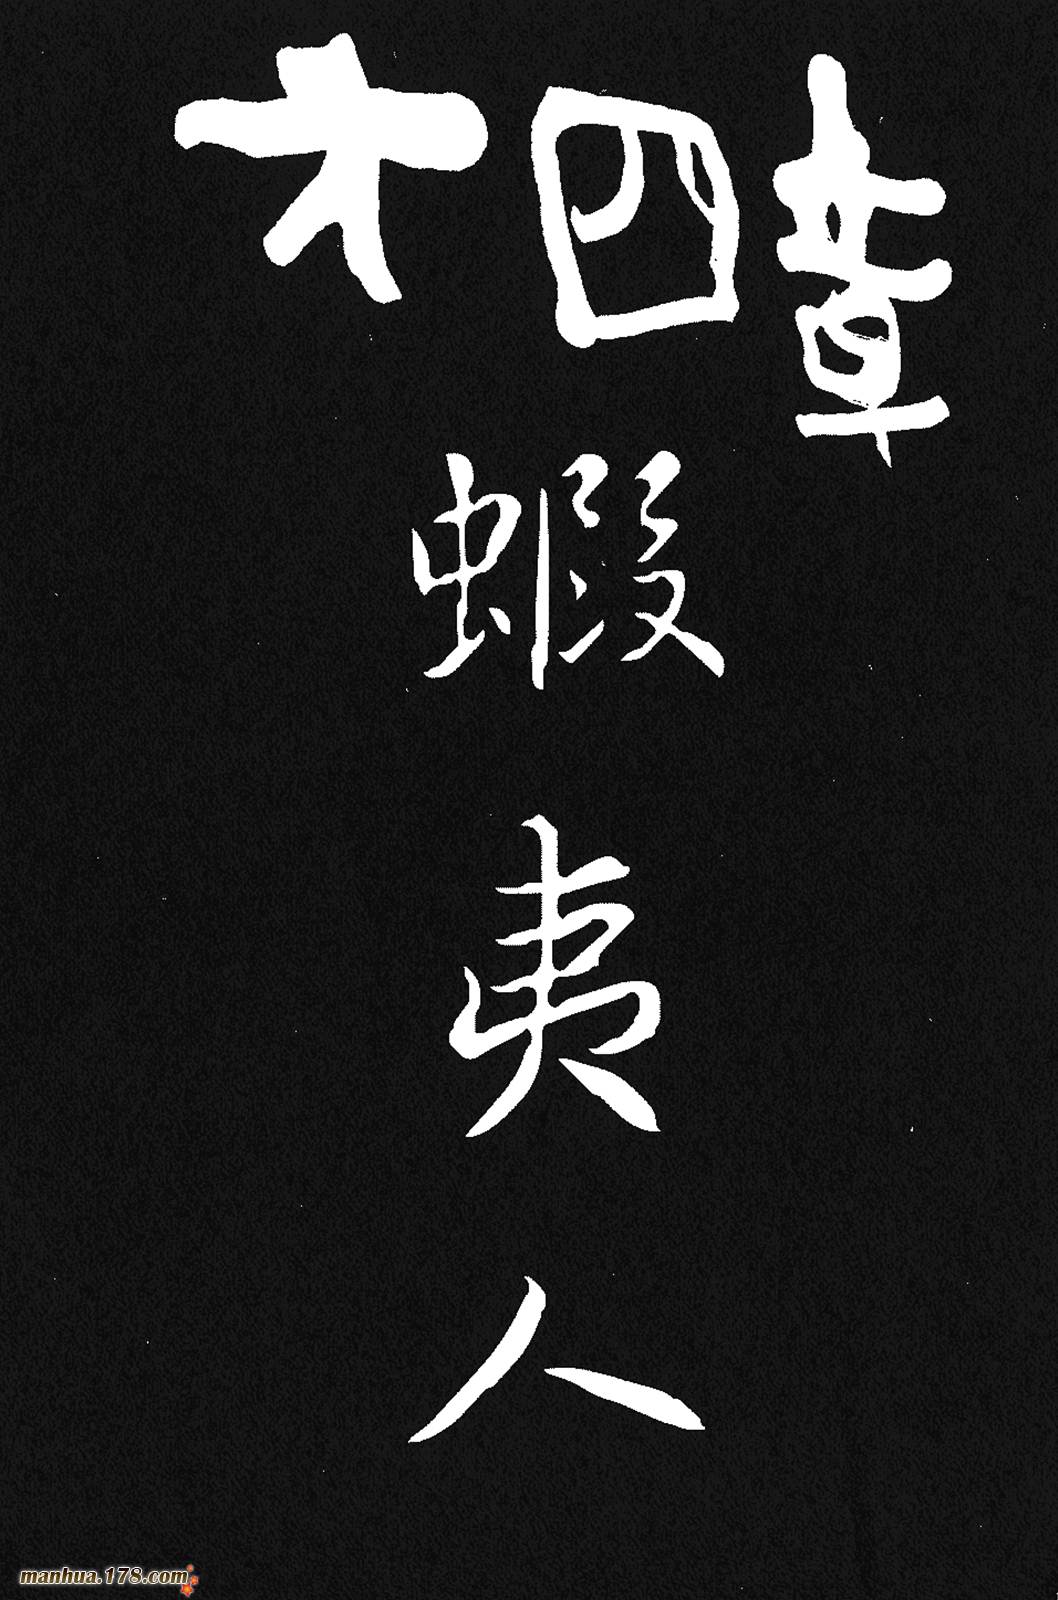 才四章
蝦夷人
manhua.178.com